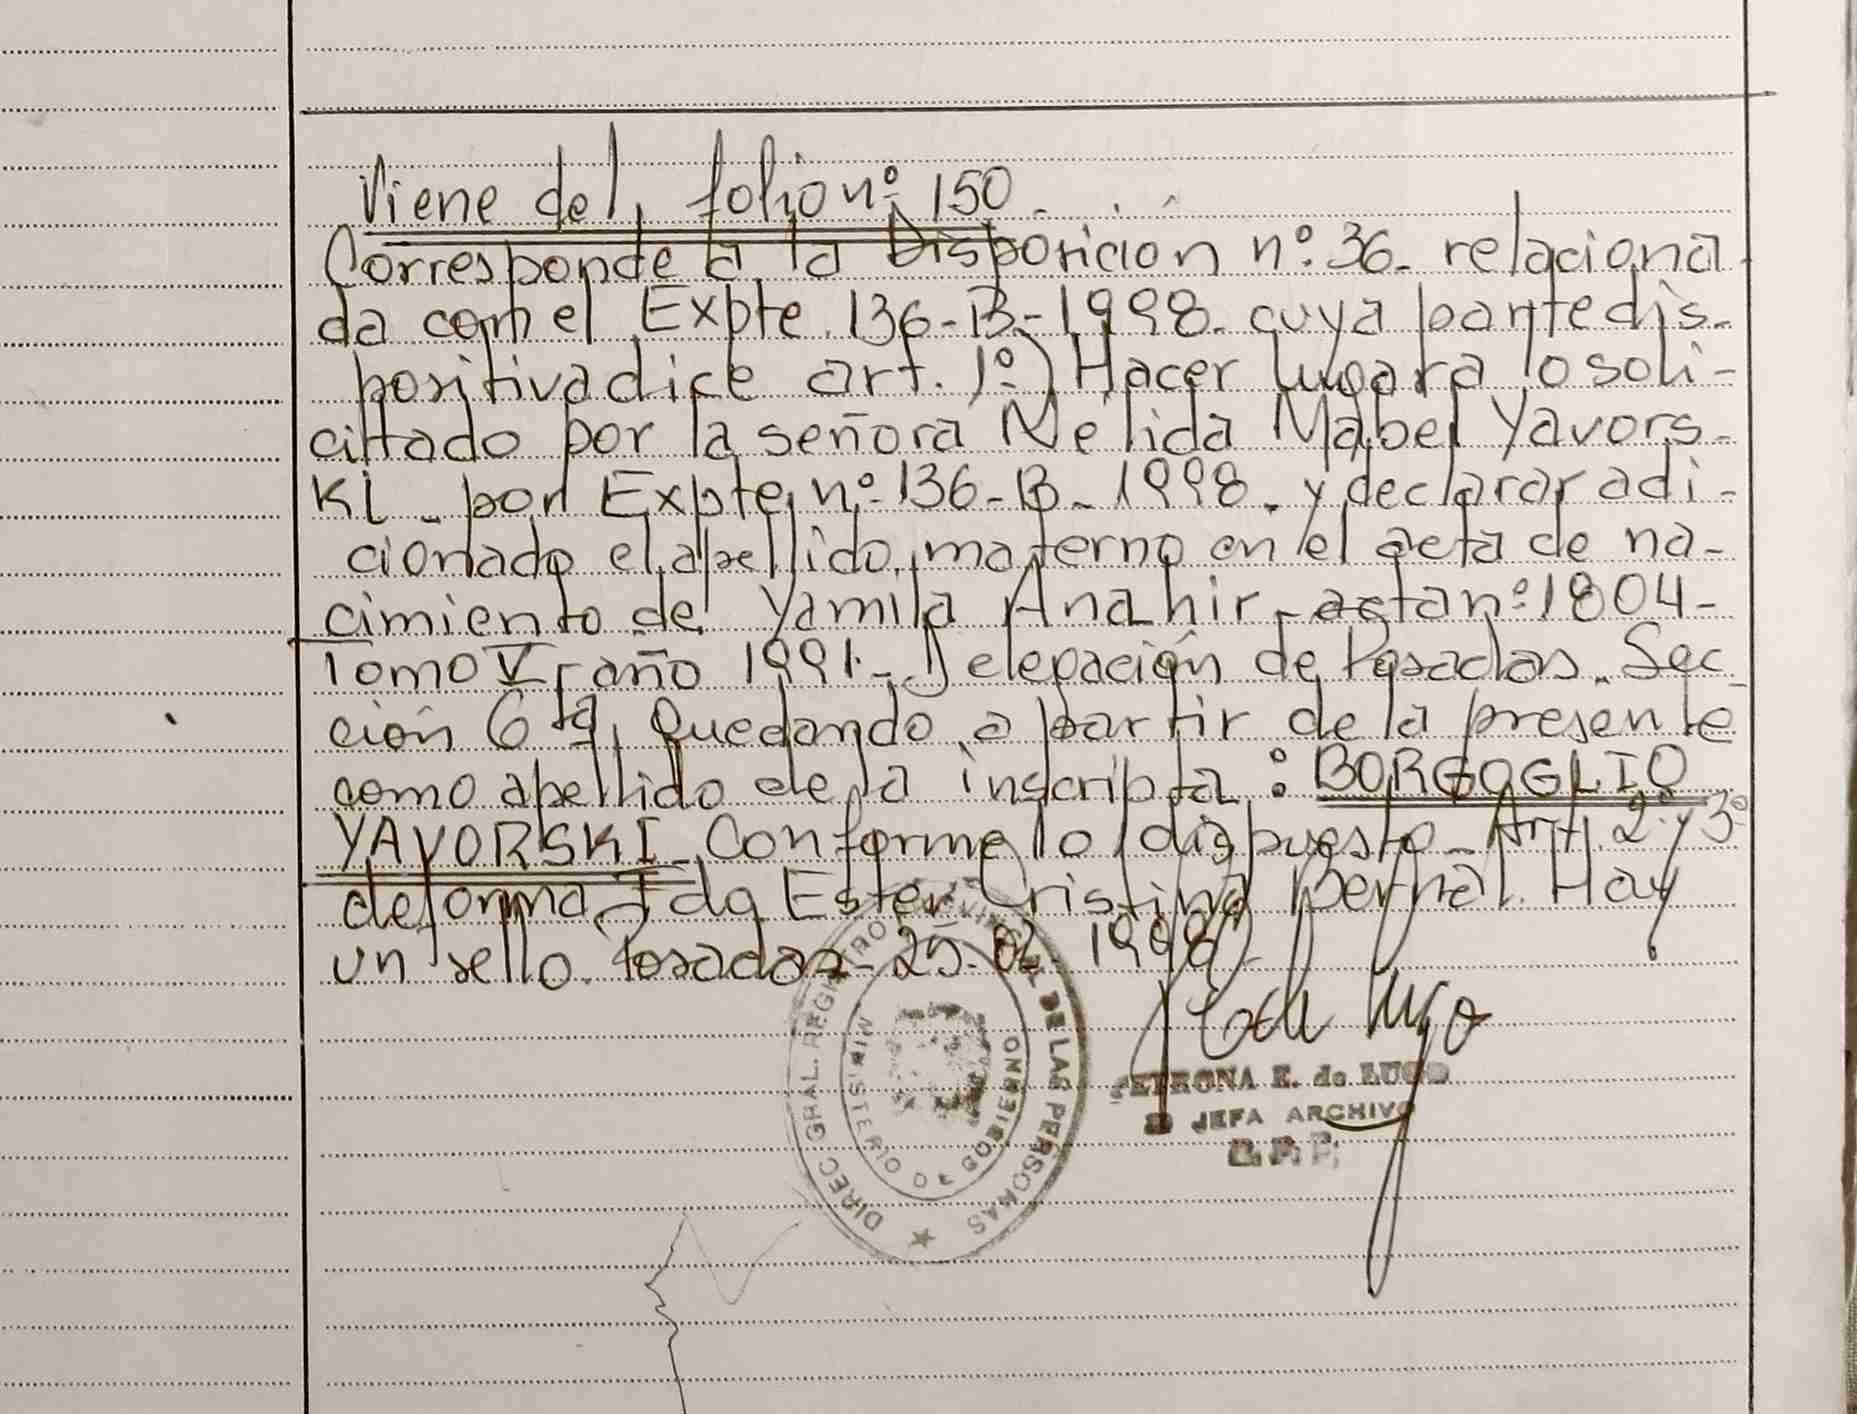 Viene del folio nº 150.
Corresponde a la Disposicion nº. 36. relaciona
da con el Expte. 136-B-1998. cuya parte dis-
positiva dice art. 1º) Hacer lugar a lo soli-
citado por la señora Nelida Mabel Yavors-
Ki - por Expte nº 136-B-1998. y declarar adi-
cionado el apellido materno en el acta de na-
cimiento de Yamila Anahir - acta nº 1804-
Tomo V - año 1991.- Delegación de Posadas. Sec
ción 6ta. Quedando a partir de la presente
como apellido de la inscripta: BORGOGLIO
YAVORSKI - Conforme lo dispuesto - Art. 2º y 3º
de forma - Fdo Ester Cristina Bernal. Hay
un sello. Posadas - 25-02-1998-
PETRONA E. de LUGO
JEFA ARCHIVO
R. P. P.
DIREC GRAL. REGISTRO PROVINCIAL DE LAS PERSONAS
MINISTERIO DE GOBIERNO